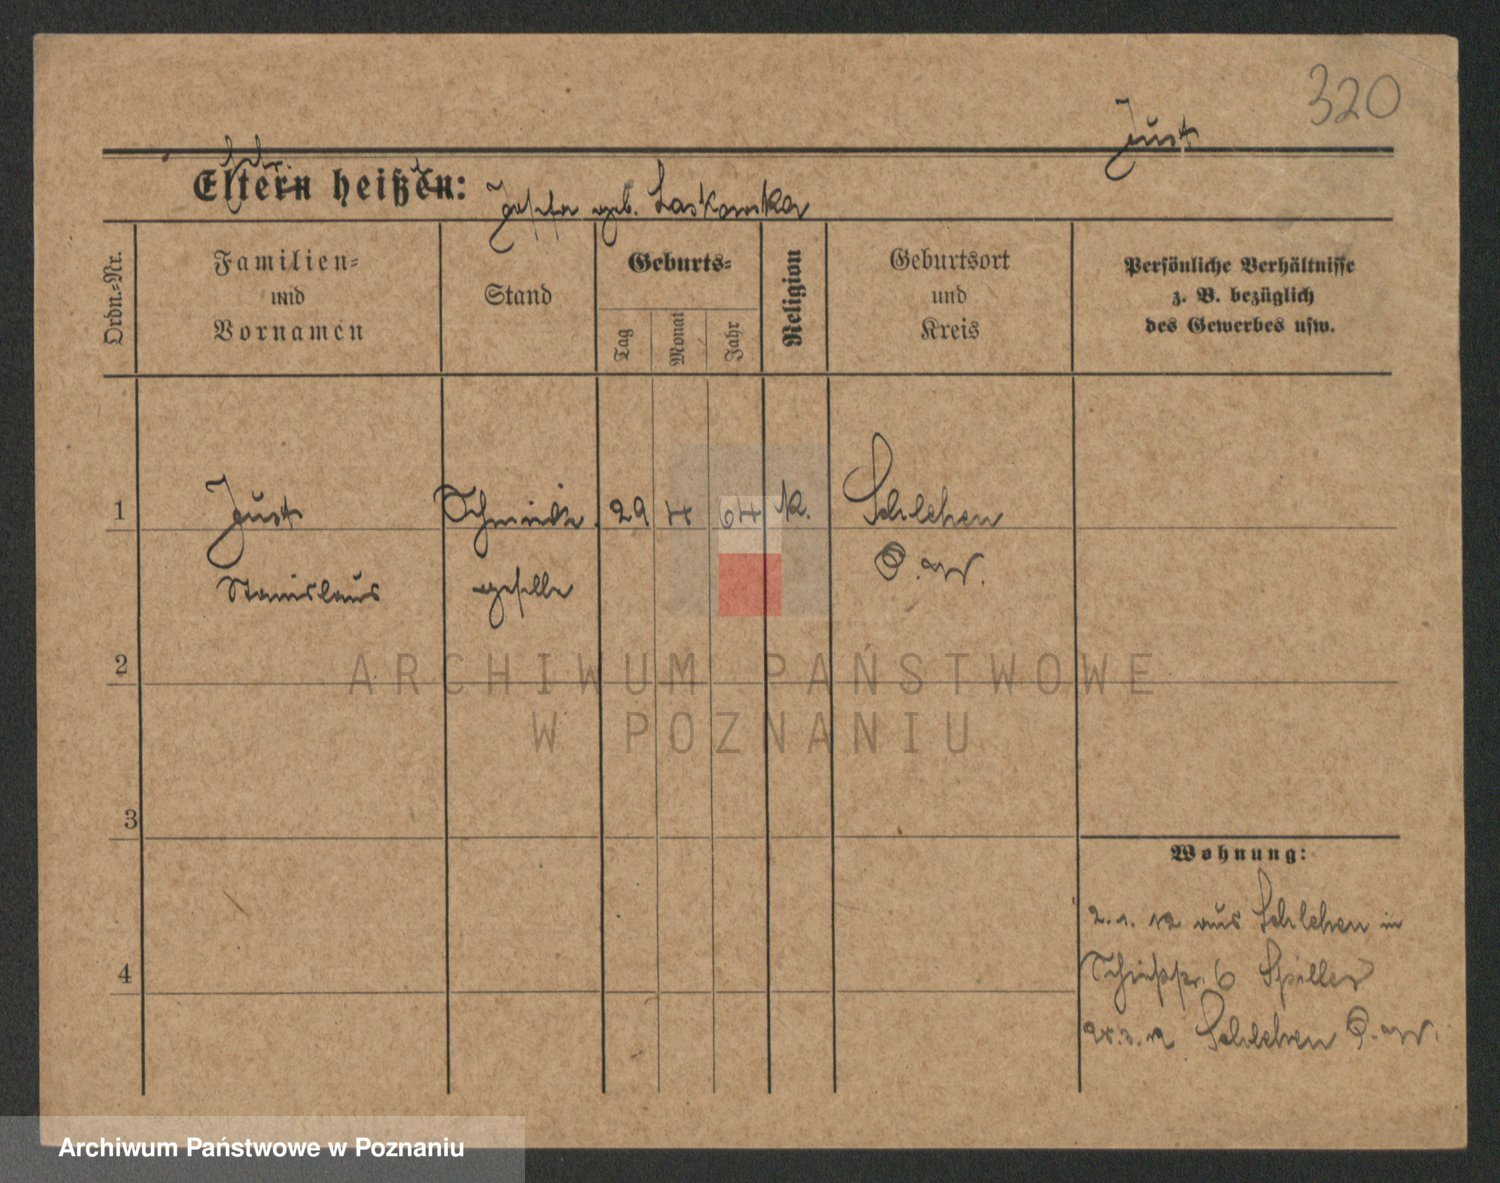 320
Just
Eltern heißen: Josefa geb. Laskowska
Ordn.=Nr.
Familien=
und
Vornamen
Stand
Geburts=
Tag
Monat
Jahr
Religion
Geburtsort
und
Kreis
Persönliche Verhältnisse
z. B. bezüglich
des Gewerbes usw.
1 Just Schmiede. 29 4 64 k. Schlehen
Stanislaus geselle P.W.
2
3
4
Wohnung:
2.1.12 aus Schlehen in
6 Spiller
28.3.12 Schlehen P.W.
ARCHIWUM PAŃSTWOWE
W POZNANIU
Archiwum Państwowe w Poznaniu